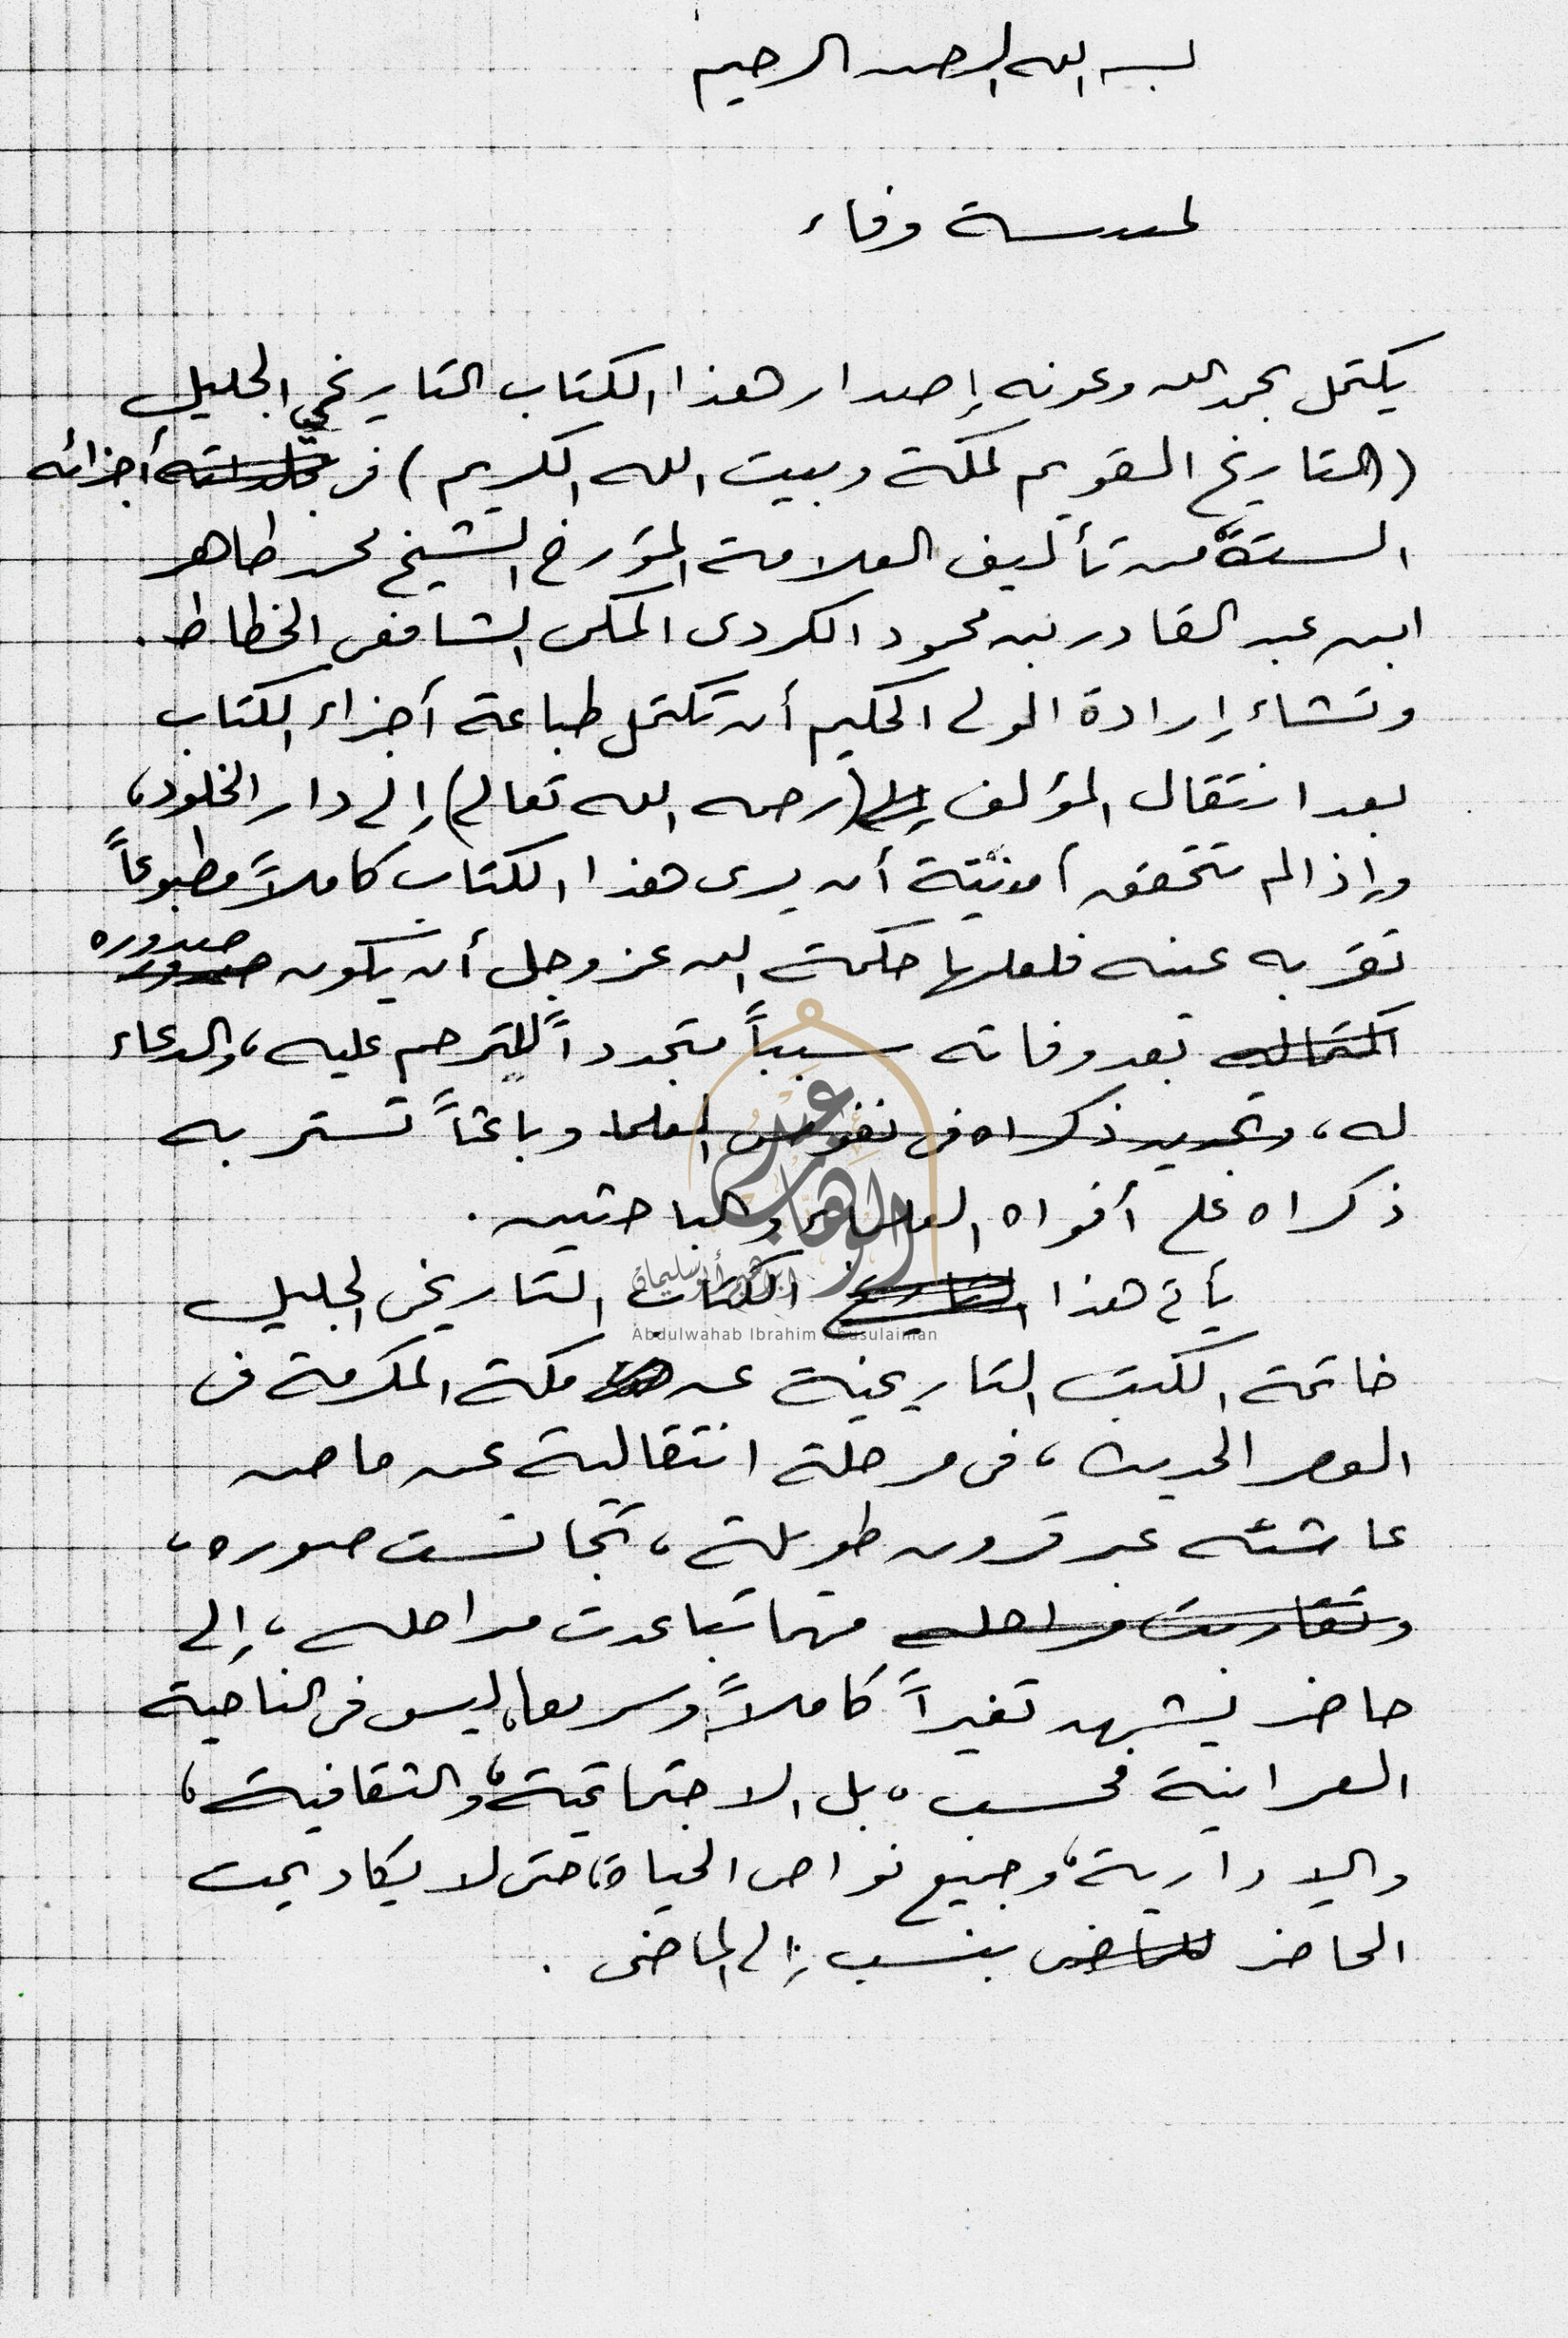 بسم الله الرحمن الرحيم
لمسة وفاء
يكتمل بحمد الله وعونه إصدار هذا الكتاب التاريخي الجليل
(التاريخ القويم لمكة وبيت الله الكريم) في أجزائه
الستة من تأليف العلامة المؤرخ الشيخ محمد طاهر
ابن عبد القادر بن محمود الكردي المكي الشافعي الخطاط .
وتشاء إرادة المولى الحكيم أن تكتمل طباعة أجزاء الكتاب
بعد انتقال المؤلف إلى (رحمه الله تعالى) إلى دار الخلود،
وإذا لم تتحقق أمنيته أن يرى هذا الكتاب كاملاً مطبوعاً
تقر به عينه فلعلها حكمة الله عز وجل أن يكون صدور صدوره
اكتماله بعد وفاته سبباً متجدداً للترحم عليه، والدعاء
له، وتجديد ذكراه في نفوس العلما وباعثاً تستمر به
ذكراه على أفواه العلماء والباحثين .
يأتي هذا التاريخ الكتاب التاريخي الجليل
خاتمة الكتب التاريخية عن مكة المكرمة في
العصر الحديث، في مرحلة انتقالية عن ماض
عاشته عبر قرون طويلة، تجانست صوره،
وتقاربت مراحله مهما تباعدت مراحله، إلى
حاضر يشهد تغيراً كاملاً وسريعا، ليس في الناحية
العمرانية فحسب، بل الاجتماعية، والثقافية،
والإدارية، وجميع نواحي الحياة، حتى لا يكاد يمت
الحاضر للماضي بنسب إلى الماضي .
عبد الوهاب
إبراهيم أبو سليمان
Abdulwahab Ibrahim Abusulaiman